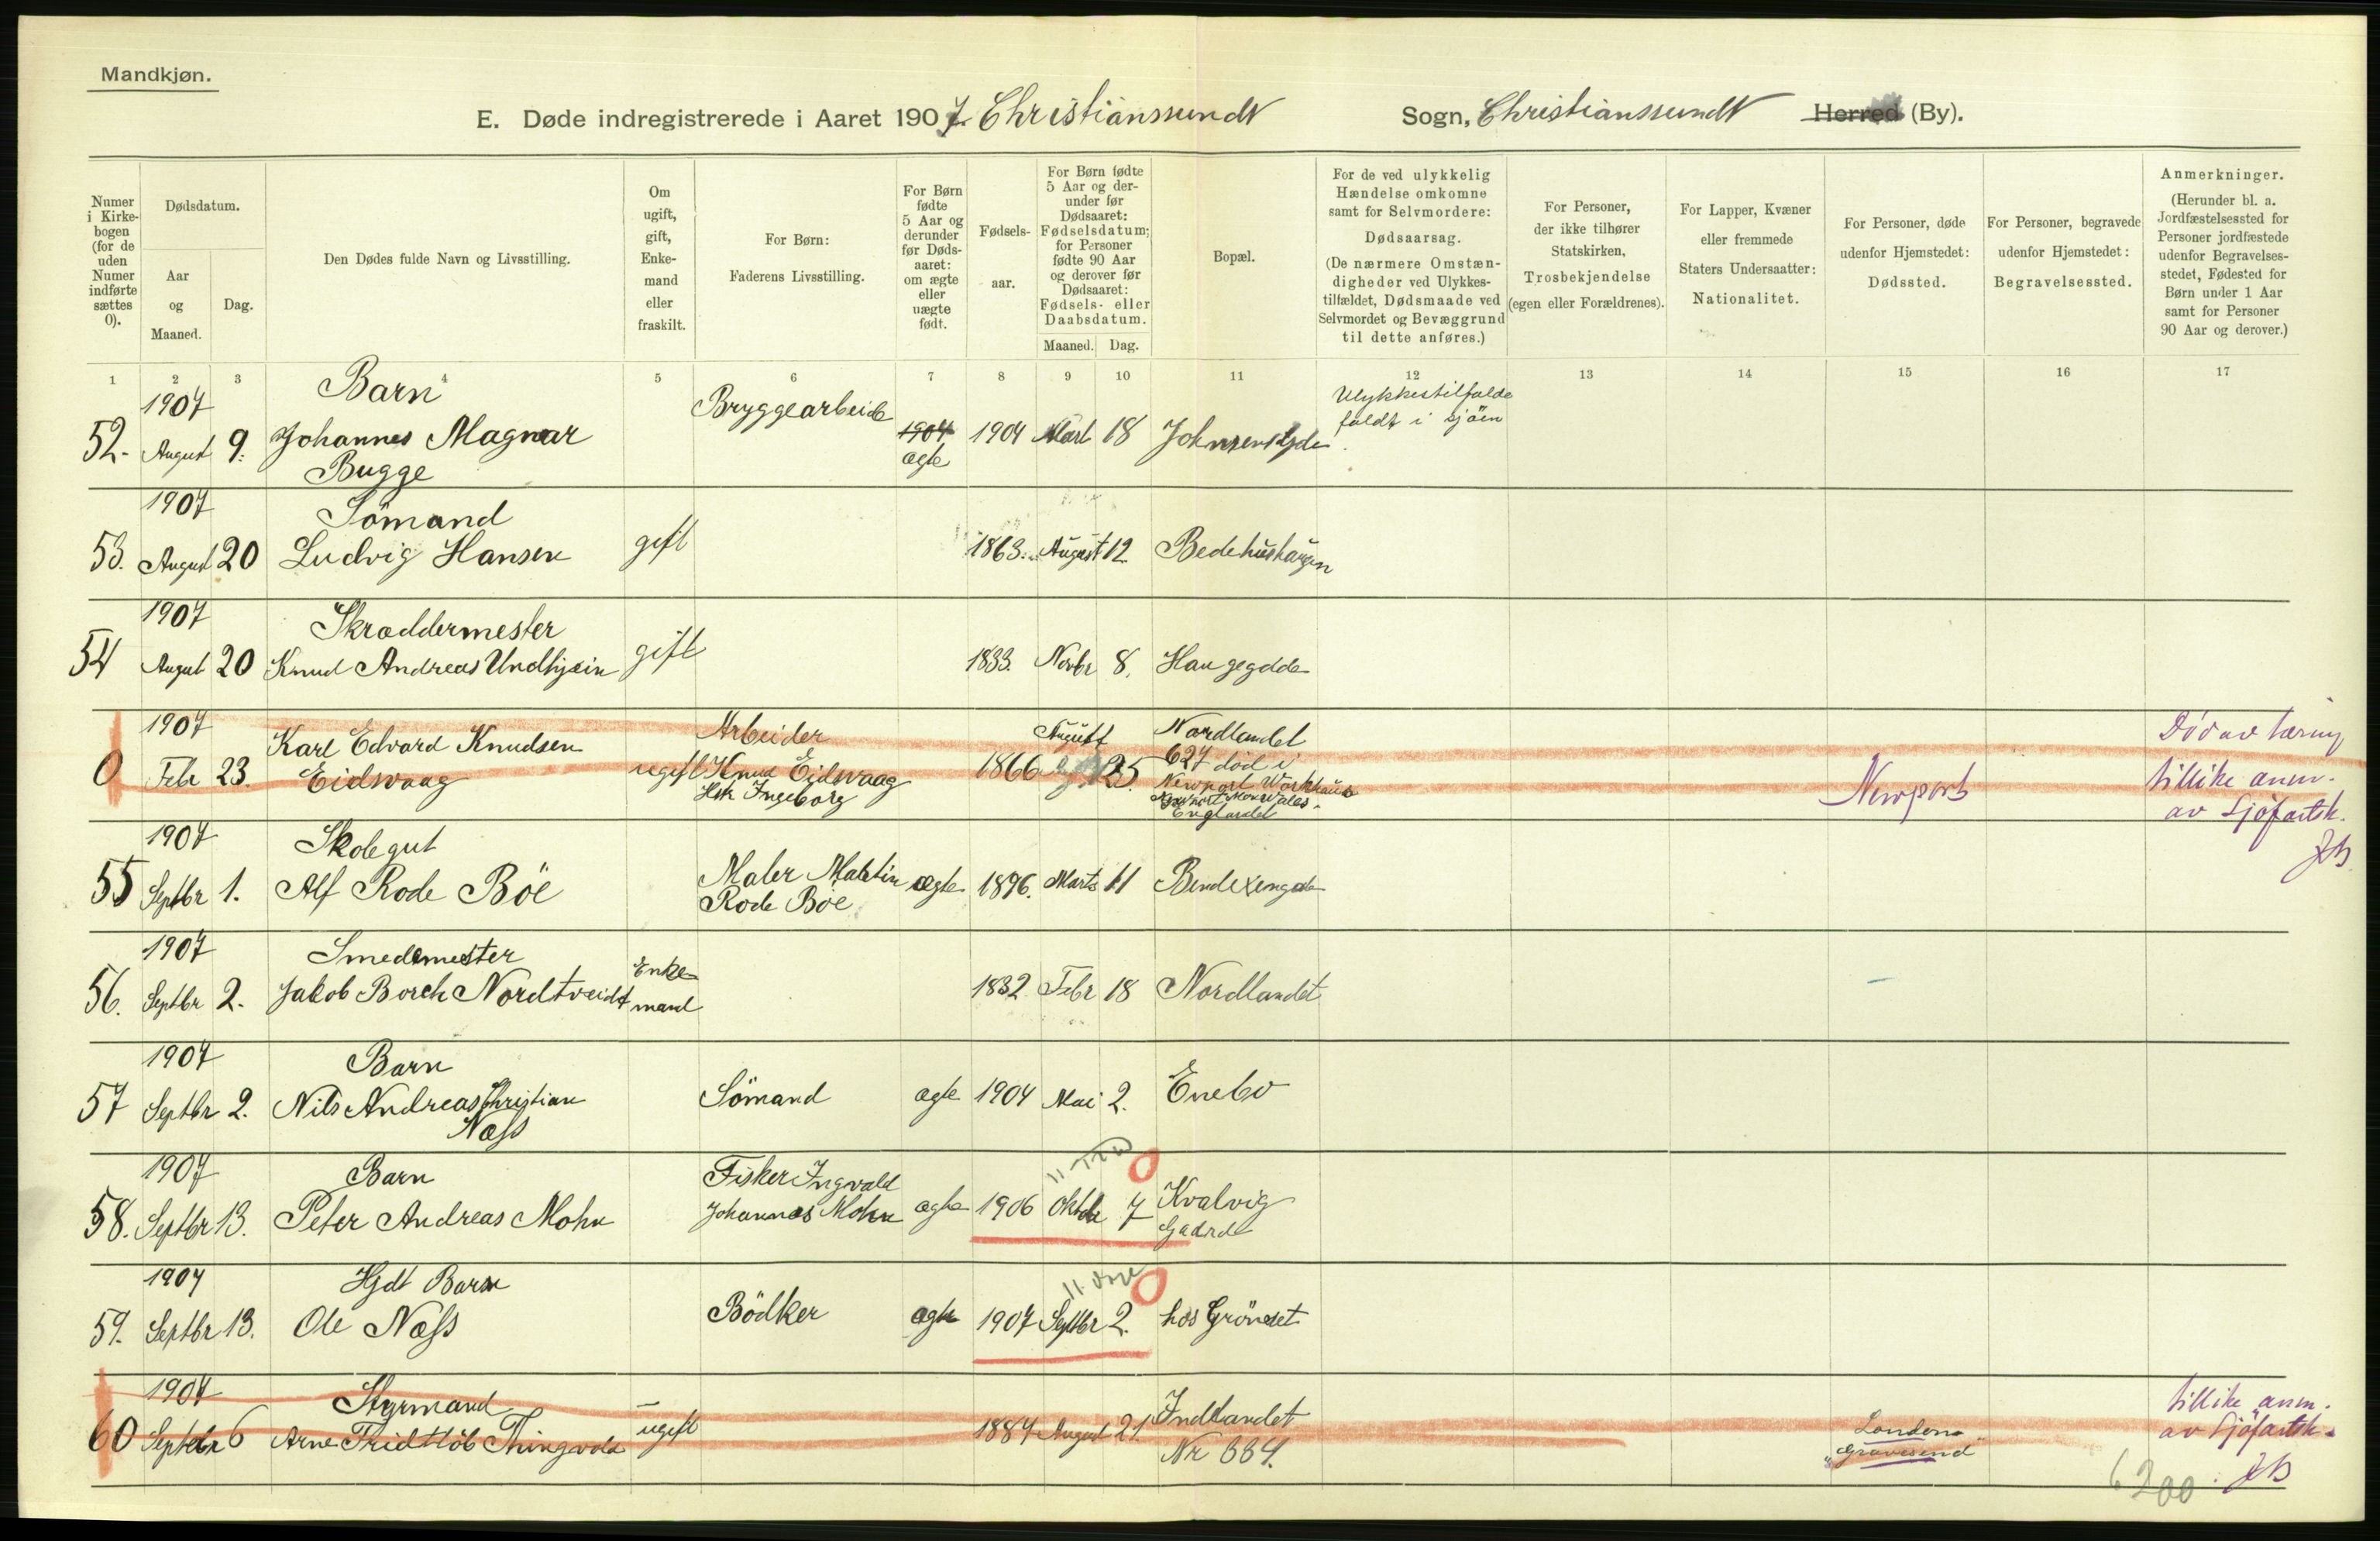 Mandkjøn.
E. Døde indregistrerede i Aaret 1907. Christianssundt Sogn, Christianssundt Herred (By).
Numer i Kirkebogen (for de uden Numer indførte sættes 0).
Dødsdatum.
Aar og Maaned.
Dag.
Den Dødes fulde Navn og Livsstilling.
Om ugift, gift, Enkemand eller fraskilt.
For Børn: Faderens Livsstilling.
For Børn fødte 5 Aar og derunder før Dødsaaret: om ægte eller uægte født.
Fødselsaar.
For Børn fødte 5 Aar og derunder før Dødsaaret: Fødselsdatum; for Personer fødte 90 Aar og derover før Dødsaaret: Fødsels- eller Daabsdatum.
Maaned. Dag.
Bopæl.
For de ved ulykkelig Hændelse omkomne samt for Selvmordere: Dødsaarsag. (De nærmere Omstændigheder ved Ulykkestilfældet, Dødsmaade ved Selvmordet og Bevæggrund til dette anføres.)
For Personer, der ikke tilhører Statskirken, Trosbekjendelse (egen eller Forældrenes).
For Lapper, Kvæner eller fremmede Staters Undersaatter: Nationalitet.
For Personer, døde udenfor Hjemstedet: Dødssted.
For Personer, begravede udenfor Hjemstedet: Begravelsessted.
Anmerkninger. (Herunder bl. a. Jordfæstelsessted for Personer jordfæstede udenfor Begravelsesstedet, Fødested for Børn under 1 Aar samt for Personer 90 Aar og derover.)
1 2 3 4 5 6 7 8 9 10 11 12 13 14 15 16 17
1907 Barn Bryggearbeide Ulykkestilfalde
52. August 9. Johannes Magnar 1904 1904 Mart 18 faldt i sjöen
Bugge ægte
1907 Sömand
53. August 20 Ludvig Hansen gift 1863. August 12. Bedehushaugen
1907 Skræddermester
54 August 20 Knud Andreas Undhjem gift 1833. Novbr 8. Haugegdde
1907 Karl Edvard Knudsen Arbeider August Nordlandet Död av tæring
0 Febr 23. Eidsvaag ugift Knud Eidsvaag 1866 25. 627 död i Newport tillike anm.
Hst Ingeborg Newport Workhaus av Sjöfartsk.
Newport Wales. JB
Englandel
1907 Skolegut
55 Septbr 1. Alf Rode Böe Maler Martin ægte 1896. Marts 11 Bendixengade
Rode Böe
1907 Smedemester Enke-
56. Septbr 2. Jakob Borch Nordtveidt mand 1832 Febr 18 Nordlandet
1907 Barn
57 Septbr 2. Nils Andreas Christian Sömand ægte 1904 Mai 2. Enebo
Næss
1907 Barn Fisker Ingvald
58. Septbr 13. Peter Andreas Mohn Johannes Mohn ægte 1906 Oktbr 7 Kvalvig
1907 Hjdt Barn
59. Septbr 13. Ole Næss Bödker ægte 1907 Septbr 2. hos Grönset
1907 Styrmand Indlandet tillike anm.
60 Septbr 6 Arne Fridtlöb Thingvold ugift 1884 August 21. Nr 334. London av Sjöfartsk.
"Gravesend" JB
6200